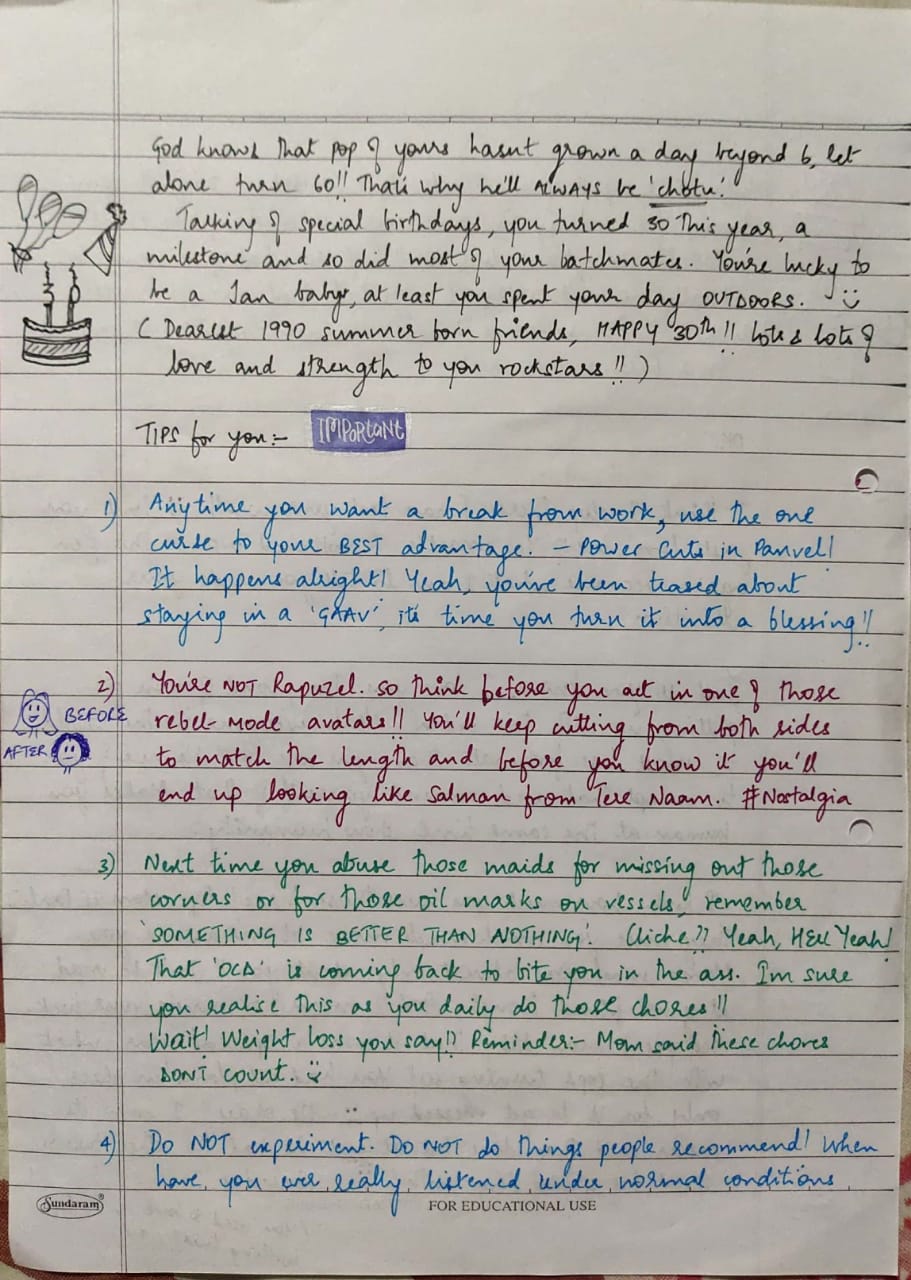 God knows that pop of yours hasnt grown a day beyond 6, let
alone turn 60!! That's why he'll ALWAYS be 'chotu'.
Talking of special birthdays, you turned 30 this year, a
milestone and so did most of your batchmates. You're lucky to
be a Jan baby, at least you spent your day OUTDOORS.
(Dearest 1990 summer born friends, HAPPY 30th!! Lots & lots of
love and strength to you rockstars!!)
30
TIPS for you:- IMPORTANT
1) Anytime you want a break from work, use the one
curse to your BEST advantage. - Power Cuts in Panvel!
It happens alright! Yeah, you've been teased about
staying in a 'GAAV', it's time you turn it into a blessing!!
2) You're NOT Rapuzel. So think before you act in one of those
rebel-mode avatars!! You'll keep cutting from both sides
to match the length and before you know it you'll
end up looking like Salman from Tere Naam. #Nostalgia
BEFORE
AFTER
3) Next time you abuse those maids for missing out those
corners or for those oil marks on vessels, remember
'SOMETHING IS BETTER THAN NOTHING'. Cliche?? Yeah, Hell Yeah!
That 'OCD' is coming back to bite you in the ass. Im sure
you realise this as you daily do those chores!!
Wait! Weight loss you say!? Reminder:- Mom said these chores
DON'T count.
4) Do NOT experiment. Do NOT do things people recommend! When
have you ever really listened under normal conditions
Sundaram®
FOR EDUCATIONAL USE